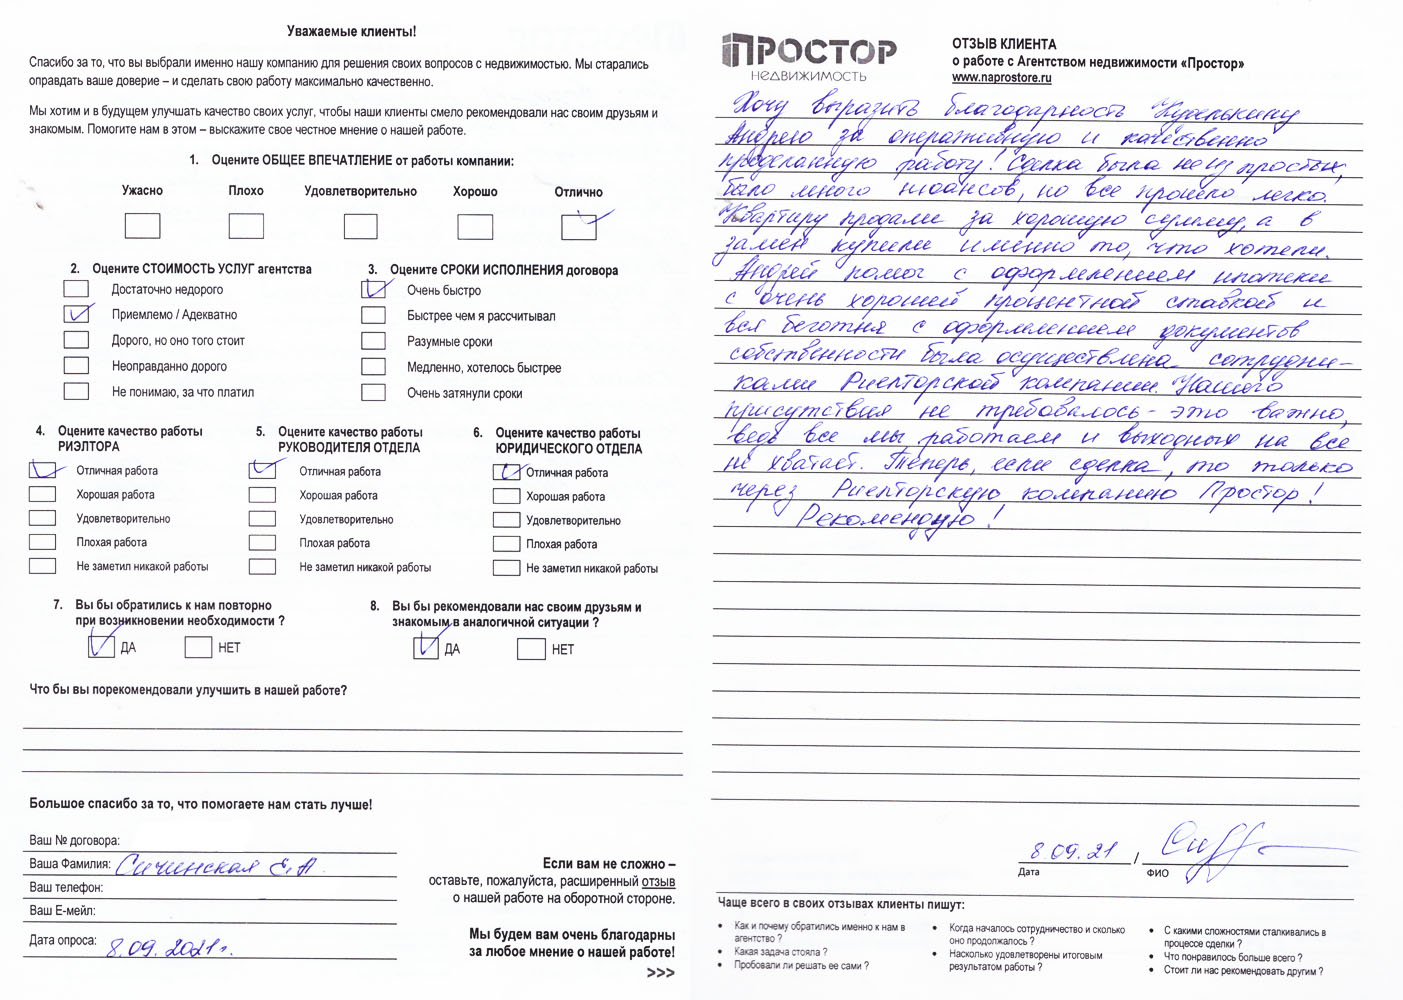 Уважаемые клиенты!
Спасибо за то, что вы выбрали именно нашу компанию для решения своих вопросов с недвижимостью. Мы старались
оправдать ваше доверие – и сделать свою работу максимально качественно.
Мы хотим и в будущем улучшать качество своих услуг, чтобы наши клиенты смело рекомендовали нас своим друзьям и
знакомым. Помогите нам в этом – выскажите свое честное мнение о нашей работе.
1. Оцените ОБЩЕЕ ВПЕЧАТЛЕНИЕ от работы компании:
Ужасно Плохо Удовлетворительно Хорошо Отлично
2. Оцените СТОИМОСТЬ УСЛУГ агентства
Достаточно недорого
Приемлемо / Адекватно
Дорого, но оно того стоит
Неоправданно дорого
Не понимаю, за что платил
3. Оцените СРОКИ ИСПОЛНЕНИЯ договора
Очень быстро
Быстрее чем я рассчитывал
Разумные сроки
Медленно, хотелось быстрее
Очень затянули сроки
4. Оцените качество работы
РИЭЛТОРА
Отличная работа
Хорошая работа
Удовлетворительно
Плохая работа
Не заметил никакой работы
5. Оцените качество работы
РУКОВОДИТЕЛЯ ОТДЕЛА
Отличная работа
Хорошая работа
Удовлетворительно
Плохая работа
Не заметил никакой работы
6. Оцените качество работы
ЮРИДИЧЕСКОГО ОТДЕЛА
Отличная работа
Хорошая работа
Удовлетворительно
Плохая работа
Не заметил никакой работы
7. Вы бы обратились к нам повторно
при возникновении необходимости ?
ДА НЕТ
8. Вы бы рекомендовали нас своим друзьям и
знакомым в аналогичной ситуации ?
ДА НЕТ
Что бы вы порекомендовали улучшить в нашей работе?
Большое спасибо за то, что помогаете нам стать лучше!
Ваш № договора:
Ваша Фамилия: Сичинская Е.А.
Ваш телефон:
Ваш Е-мейл:
Дата опроса: 8.09.2021г.
Если вам не сложно –
оставьте, пожалуйста, расширенный отзыв
о нашей работе на оборотной стороне.
Мы будем вам очень благодарны
за любое мнение о нашей работе!
>>>
ПРОСТОР
НЕДВИЖИМОСТЬ
ОТЗЫВ КЛИЕНТА
о работе с Агентством недвижимости «Простор»
www.naprostore.ru
Хочу выразить благодарность
Андрею за оперативную и качественно
проделанную работу! Сделка была не из простых,
было много нюансов, но все прошло легко.
Квартиру продали за хорошую сумму, а в
замен купили именно то, что хотели.
Андрей помог с оформлением ипотеки
с очень хорошей процентной ставкой и
вся беготня с оформлением документов
собственности была осуществлена сотрудни-
ками Риелторской компании. Нашего
присутствия не требовалось - это важно,
ведь все мы работаем и выходных на все
не хватает. Теперь, если сделка, то только
через Риелторскую компанию Простор!
Рекомендую!
8.09.21 /
Дата ФИО
Чаще всего в своих отзывах клиенты пишут:
• Как и почему обратились именно к нам в
агентство ?
• Какая задача стояла ?
• Пробовали ли решать ее сами ?
• Когда началось сотрудничество и сколько
оно продолжалось ?
• Насколько удовлетворены итоговым
результатом работы ?
• С какими сложностями сталкивались в
процессе сделки ?
• Что понравилось больше всего ?
• Стоит ли нас рекомендовать другим ?